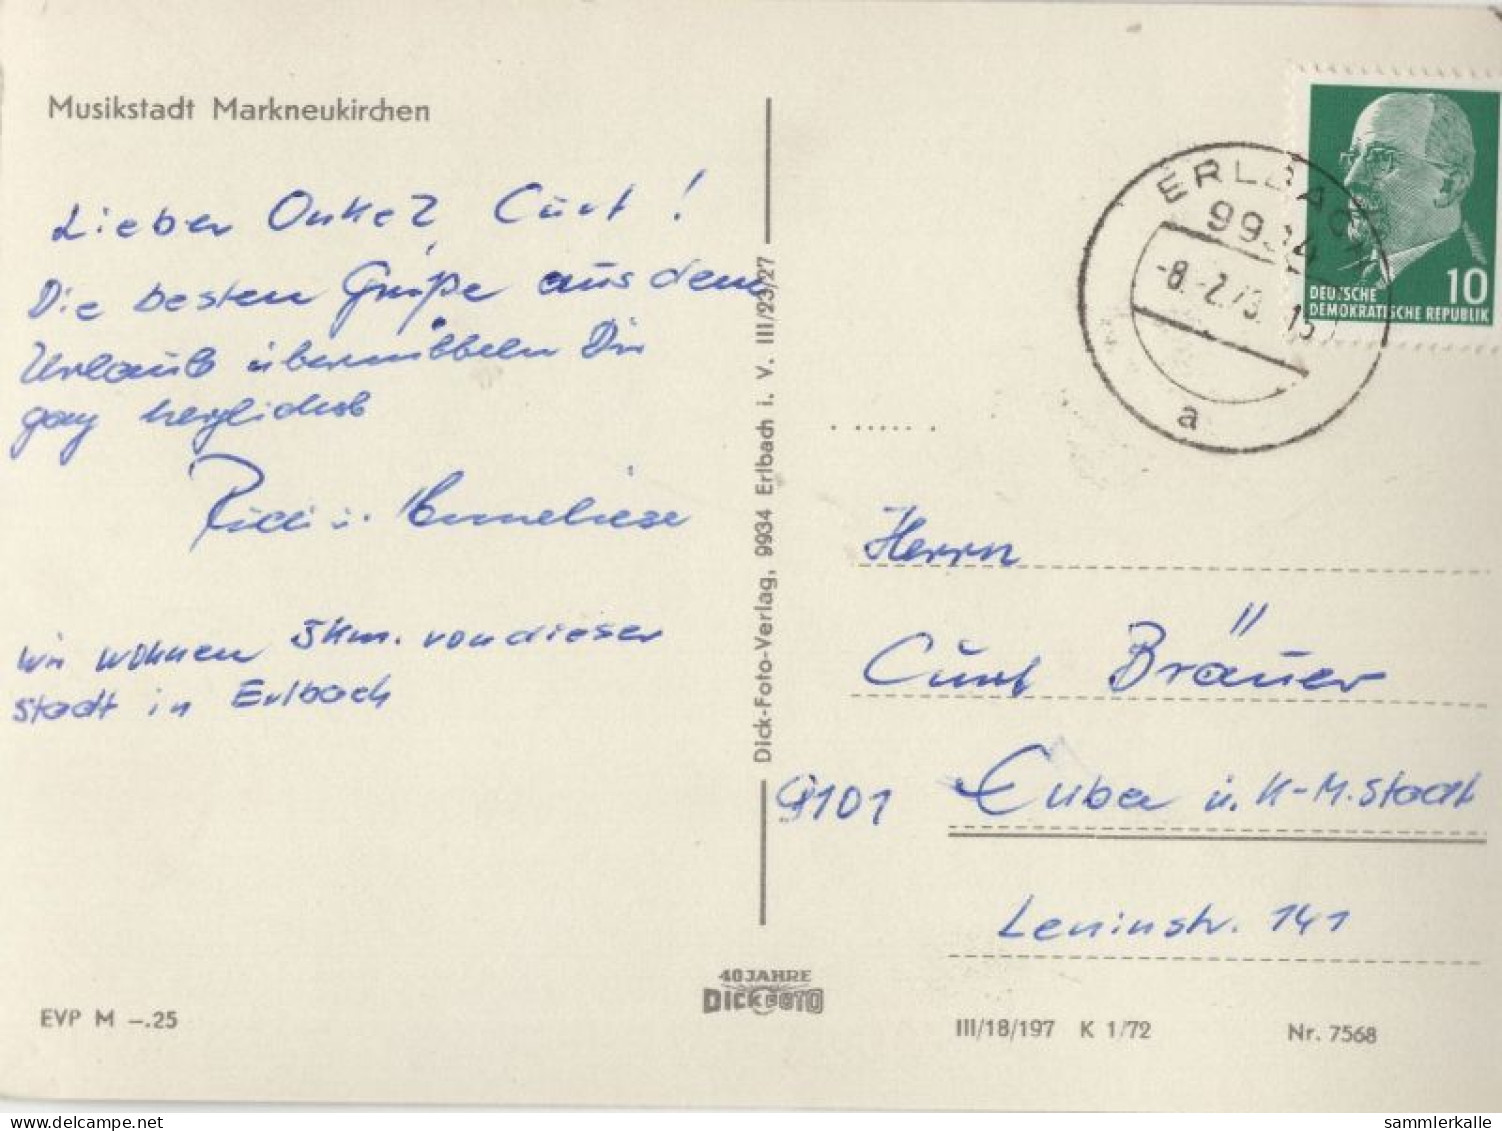 Musikstadt Markneukirchen
Lieber Onkel Curt !
Die besten Grüße aus dem
Urlaub übermitteln Dir
ganz herzlichst
u. Anneliese
wir wohnen 5 km. von dieser
Stadt in Erlbach
EVP M –.25
Dick-Foto-Verlag, 9934 Erlbach i. V. III/23/27
40 JAHRE
DICK FOTO
ERLBACH
9934
-8.-2.73.
a
10
DEUTSCHE
DEMOKRATISCHE REPUBLIK
Herrn
Curt Bräuer
9101 Euba ü. K-M.Stadt
Leninstr. 141
III/18/197 K 1/72
Nr. 7568
delcampe.net
sammlerkalle